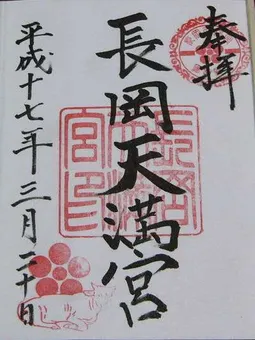 奉拝
長岡天満宮
平成十七年三月二十日